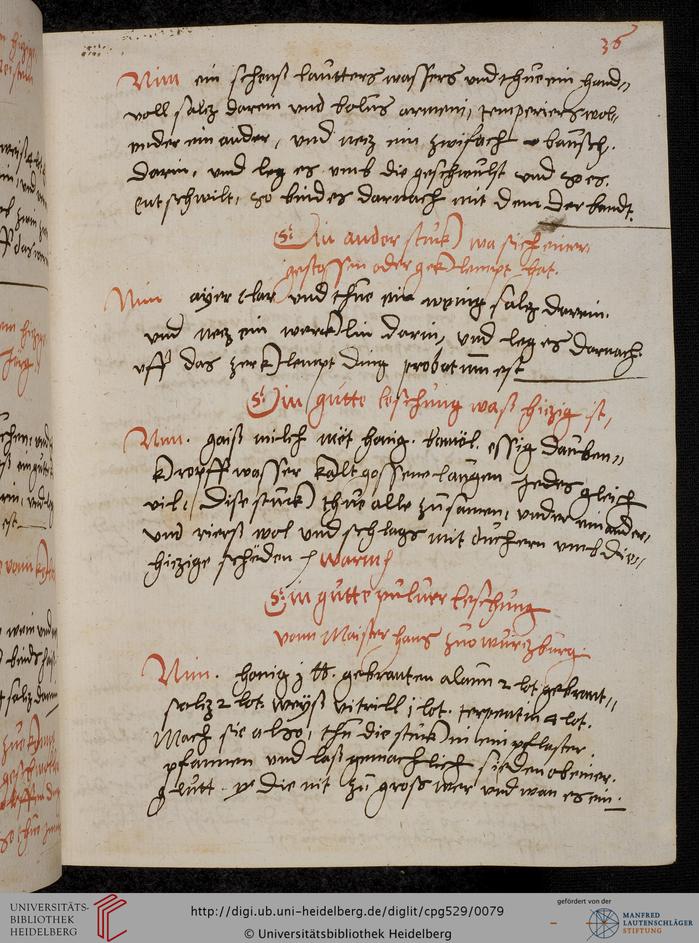 36
Nim ein schenß lautters wassers vnd thue ein hand„
voll saltz darein vnd bolus armeni, temperiers wol„
vnder ein ander, vnd netz ein zwifach bausch.
darin, vnd leg es vmb die geschwulst vnd so es.
entschwilt, so bind es darnach mit dem der bandt.
Ein ander stuck wa sich einer
gestossen oder geklempt hat.
Nim ayer klar vnd thue ein wenig saltz darein.
vnd netz ein wercklin darin, vnd leg es darnach
vff das zerklempt ding probatum est
Ein gutte leschung waß hitzig ist,
Nim. gaiß milch met honig. bamöl. essig dauben„
kropff wasser kalt gossene laugen jedes gleich
vil, dise stuck thue alle zusamen, vnder ein ander.
vnd riers wol vnd schlags mit duchern vmb die„
hitzige schäden / warm /
Ein gutte puluer leschung
vonn Maister hans zuo wurtzburg.
Nim. honig j ℔. gebranten alaun 2 lot gebrant„
saltz 2 lot. weyß vitrill j lot. terpentin 4 lot.
Mach sie also, thu die stuck in ein pflaster.
pfannen vnd laß gemachlich sieden ob einer.
glutt die nit zu gross wer vnd wan es ein.
UNIVERSITÄTS-
BIBLIOTHEK
HEIDELBERG
http://digi.ub.uni-heidelberg.de/diglit/cpg529/0079
© Universitätsbibliothek Heidelberg
gefördert von der
MANFRED
LAUTENSCHLÄGER
STIFTUNG